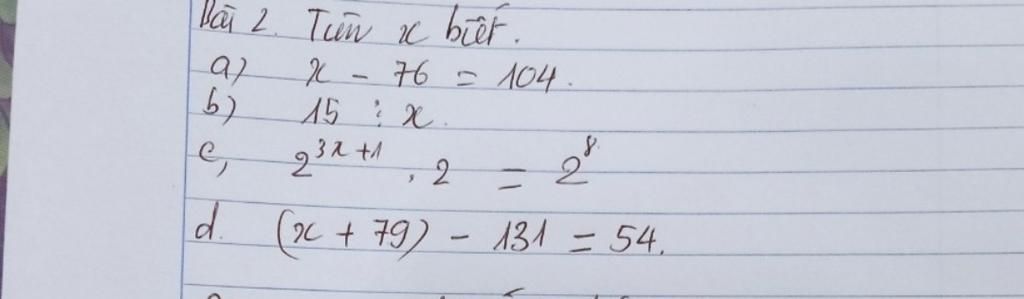 Bài 2. Tìm x biết.
a) x - 76 = 104.
b) 15 ⋮ x.
c, 2^{3x+1} . 2 = 2^8
d. (x + 79) - 131 = 54.